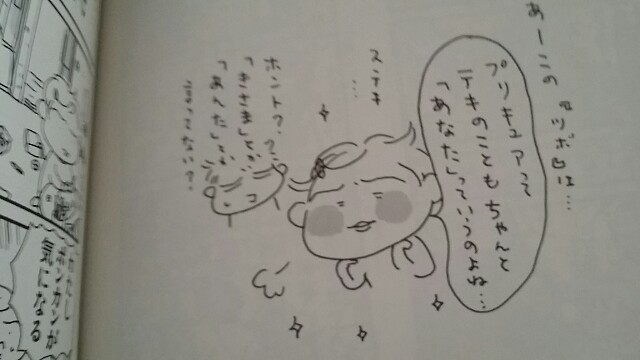 あーこの『ツボ』は…
プリキュアって
テキのこともちゃんと
「あなた」っていうのよね…
ステキ
…
ホント?・?
「きさま」とか
「あんた」とか
言ってない?・
わたし
ポンカンが
気になる